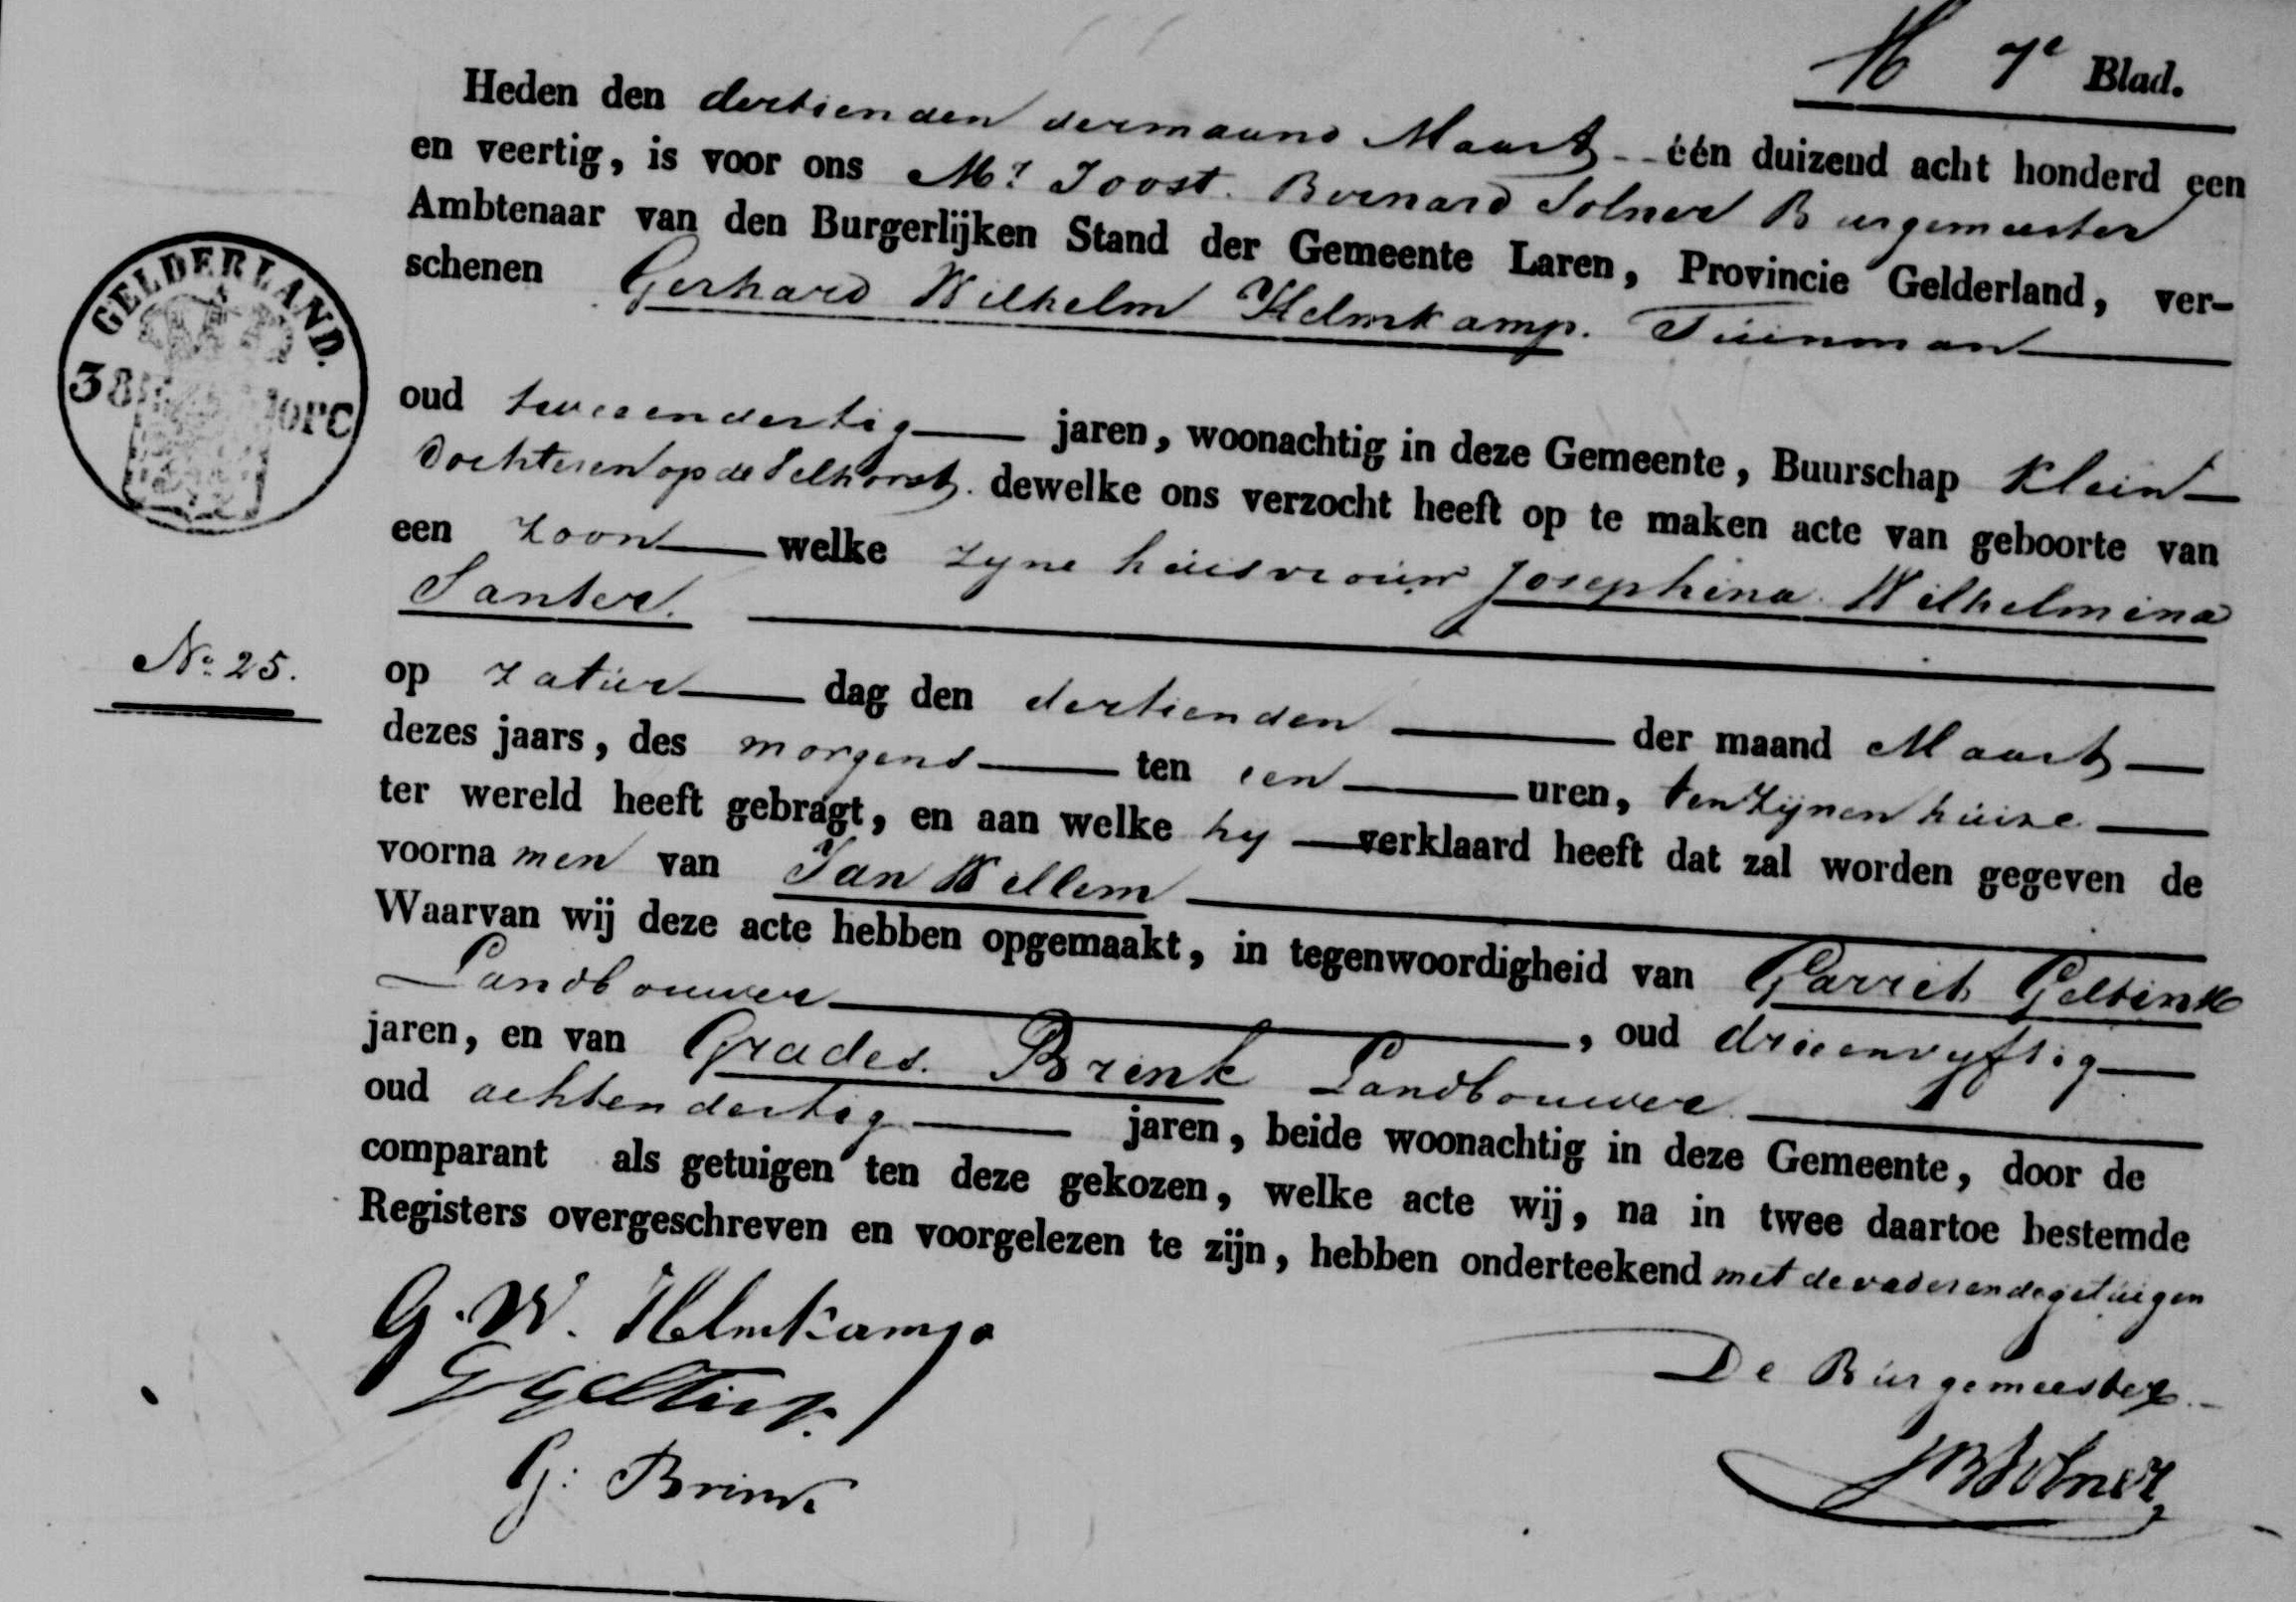 7e Blad.
Heden den dertienden der maand Maart één duizend acht honderd een
en veertig, is voor ons Mr Joost Bernard Solner Burgemeester
Ambtenaar van den Burgerlijken Stand der Gemeente Laren, Provincie Gelderland, ver-
schenen Gerhard Wilhelm Helmkamp. Tuinman
GELDERLAND.
38
oud tweeendertig jaren, woonachtig in deze Gemeente, Buurschap Klein
Dochteren op de Velhorst. dewelke ons verzocht heeft op te maken acte van geboorte van
een zoon welke zyne huisvrouw Josephina Wilhelmina
Santer.
No. 25.
op zatur dag den dertienden der maand Maart
dezes jaars, des morgens ten een uren, ten zijnen huize
ter wereld heeft gebragt, en aan welke hy verklaard heeft dat zal worden gegeven de
voorna men van Jan Willem
Waarvan wij deze acte hebben opgemaakt, in tegenwoordigheid van Garrit Geltink
Landbouwer, oud drieenvyftig
jaren, en van Grades Brink Landbouwer
oud achtendertig jaren, beide woonachtig in deze Gemeente, door de
comparant als getuigen ten deze gekozen, welke acte wij, na in twee daartoe bestemde
Registers overgeschreven en voorgelezen te zijn, hebben onderteekend met de vader en de getuigen
G. W. Helmkamp
G Geltink.
G: Brink
De Burgemeester
JB Solner